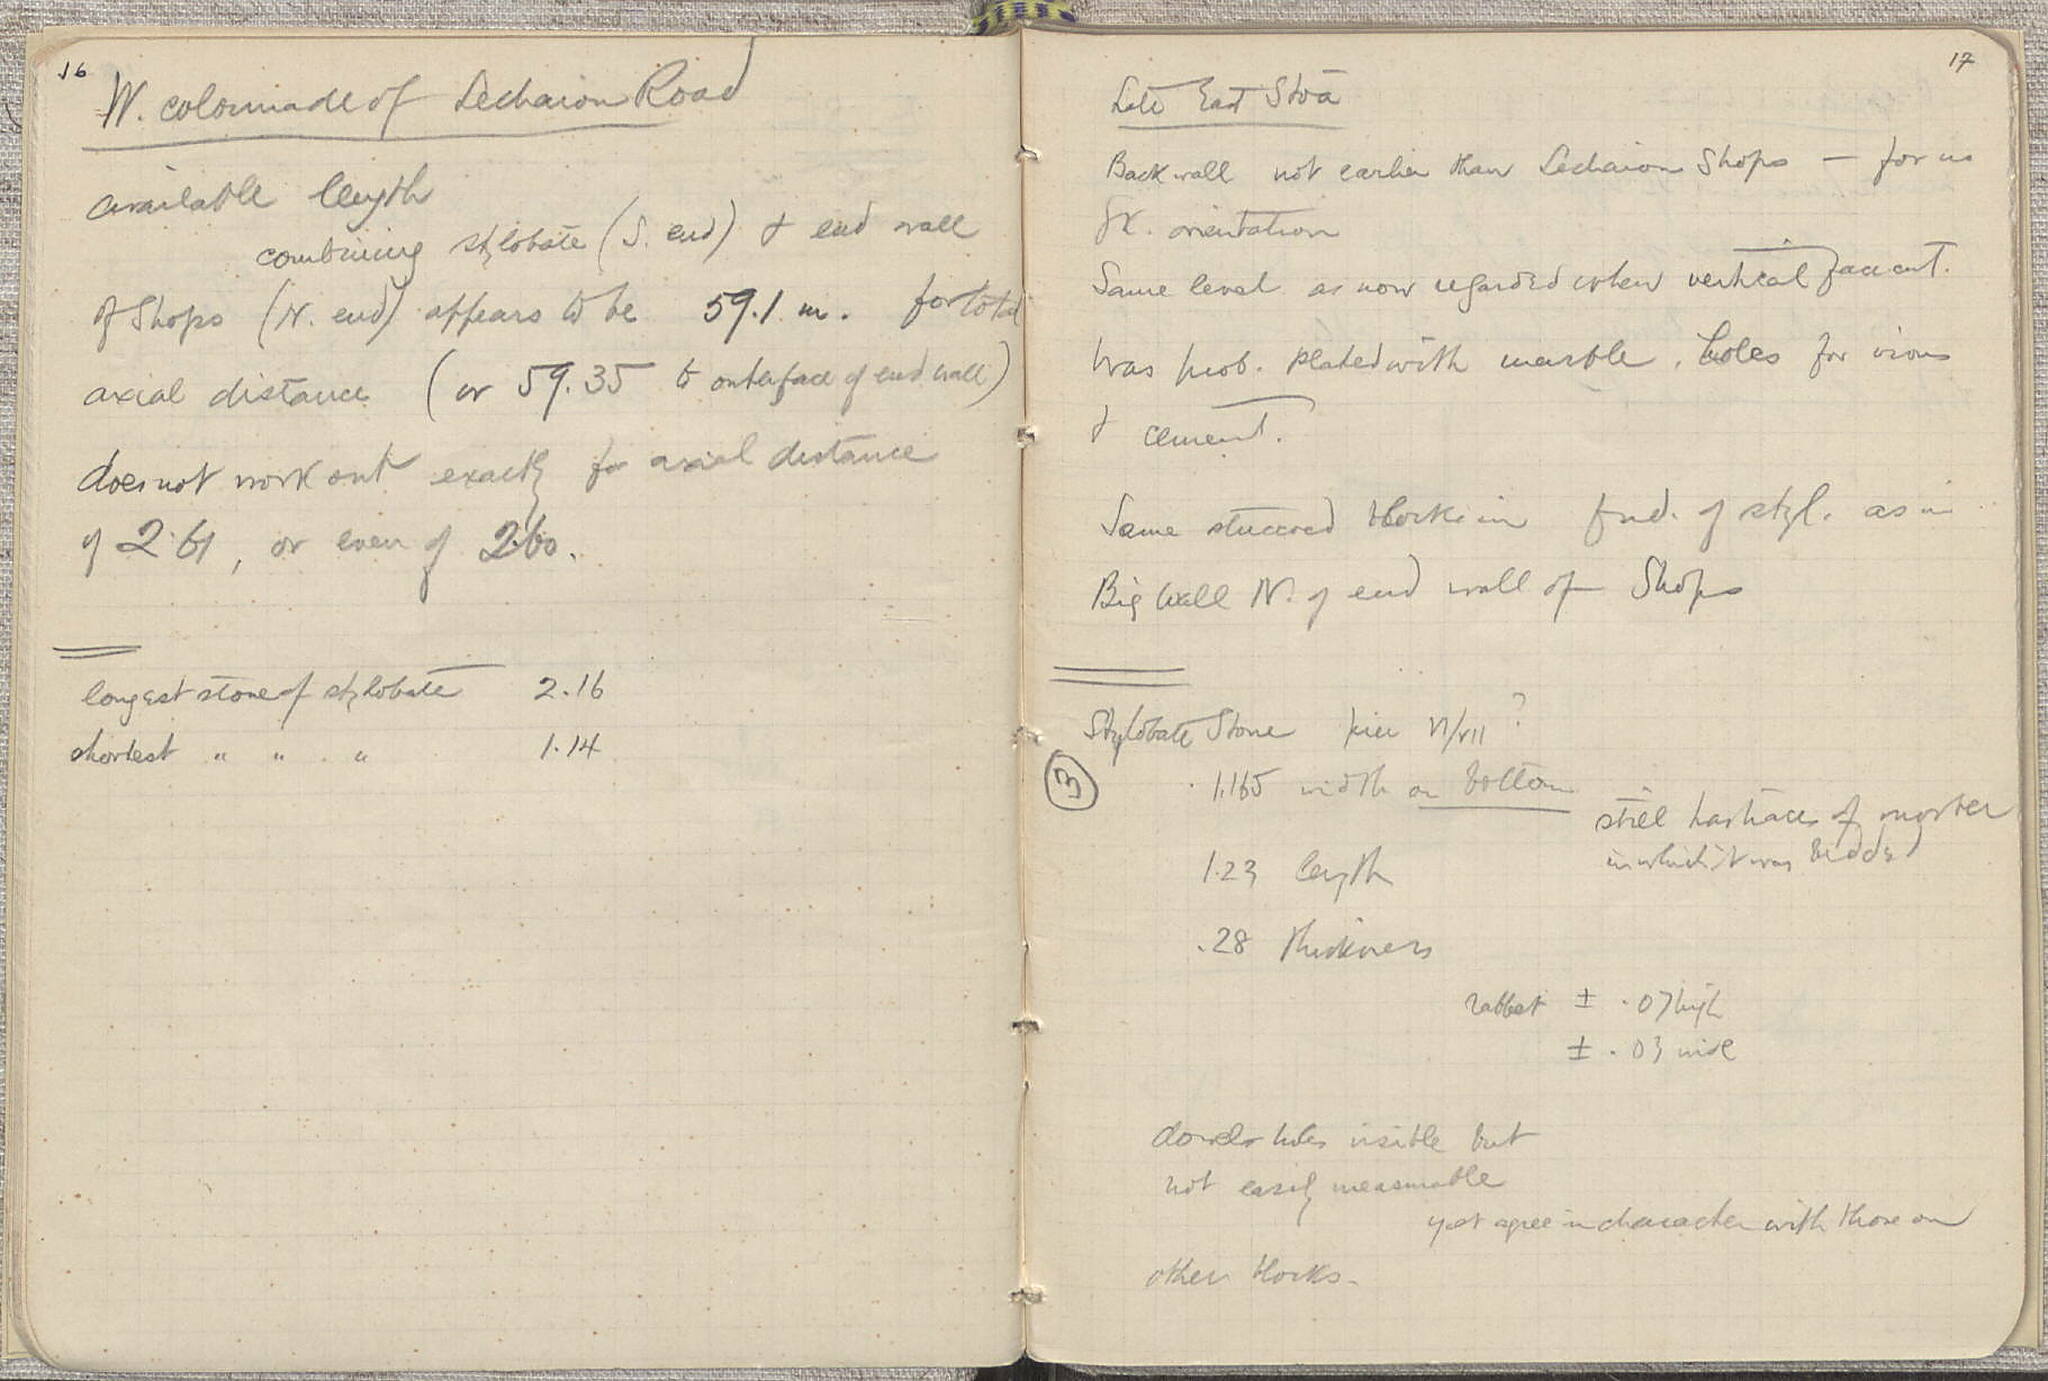 16
W. colonnade of Lechaion Road
available length
combining stylobate (S. end) & end wall
of Shops (N. end) appears to be 59.1 m. for total
axial distance (or 59.35 to outer face of end wall)
does not work out exactly for axial distance
of 2.61, or even of 2.60.
longest stone of stylobate 2.16
shortest " " " 1.14
17
Late East Stoa
Back wall not earlier than Lechaion Shops — for us
Gk. orientation
Same level as now regarded when vertical face cut.
Was prob. plated with marble. holes for irons
& cement.
Same stuccoed blocks in fnd. of styl. as in
Big wall N. of end wall of Shops
Stylobate Stone pier VI/VII ?
3
1.165 width on bottom
still has traces of mortar
in which it was bedded
1.23 length
.28 thickness
rabbet ± .07 high
± .03 wide
dowel holes visible but
not easily measurable
yet agree in character with those on
other blocks.